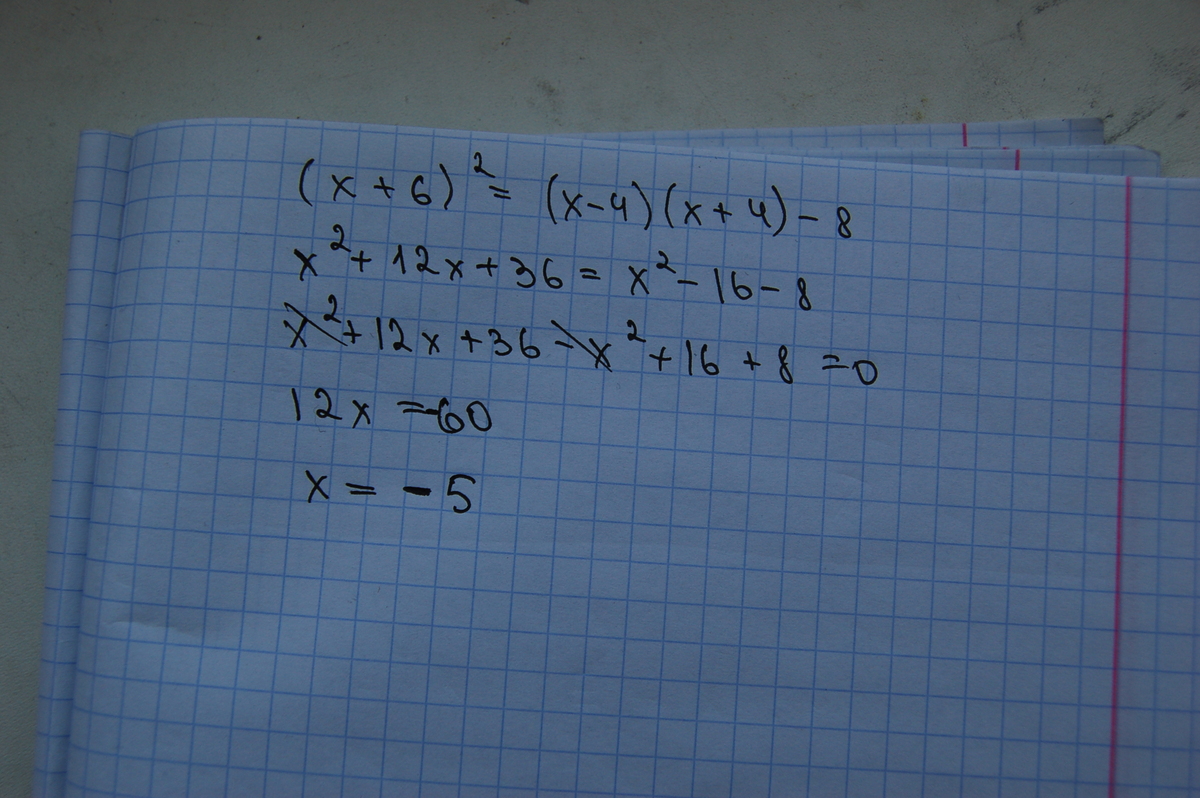 (x + 6)² = (x - 4)(x + 4) - 8
x² + 12x + 36 = x² - 16 - 8
x² + 12x + 36 - x² + 16 + 8 = 0
12x = -60
x = - 5